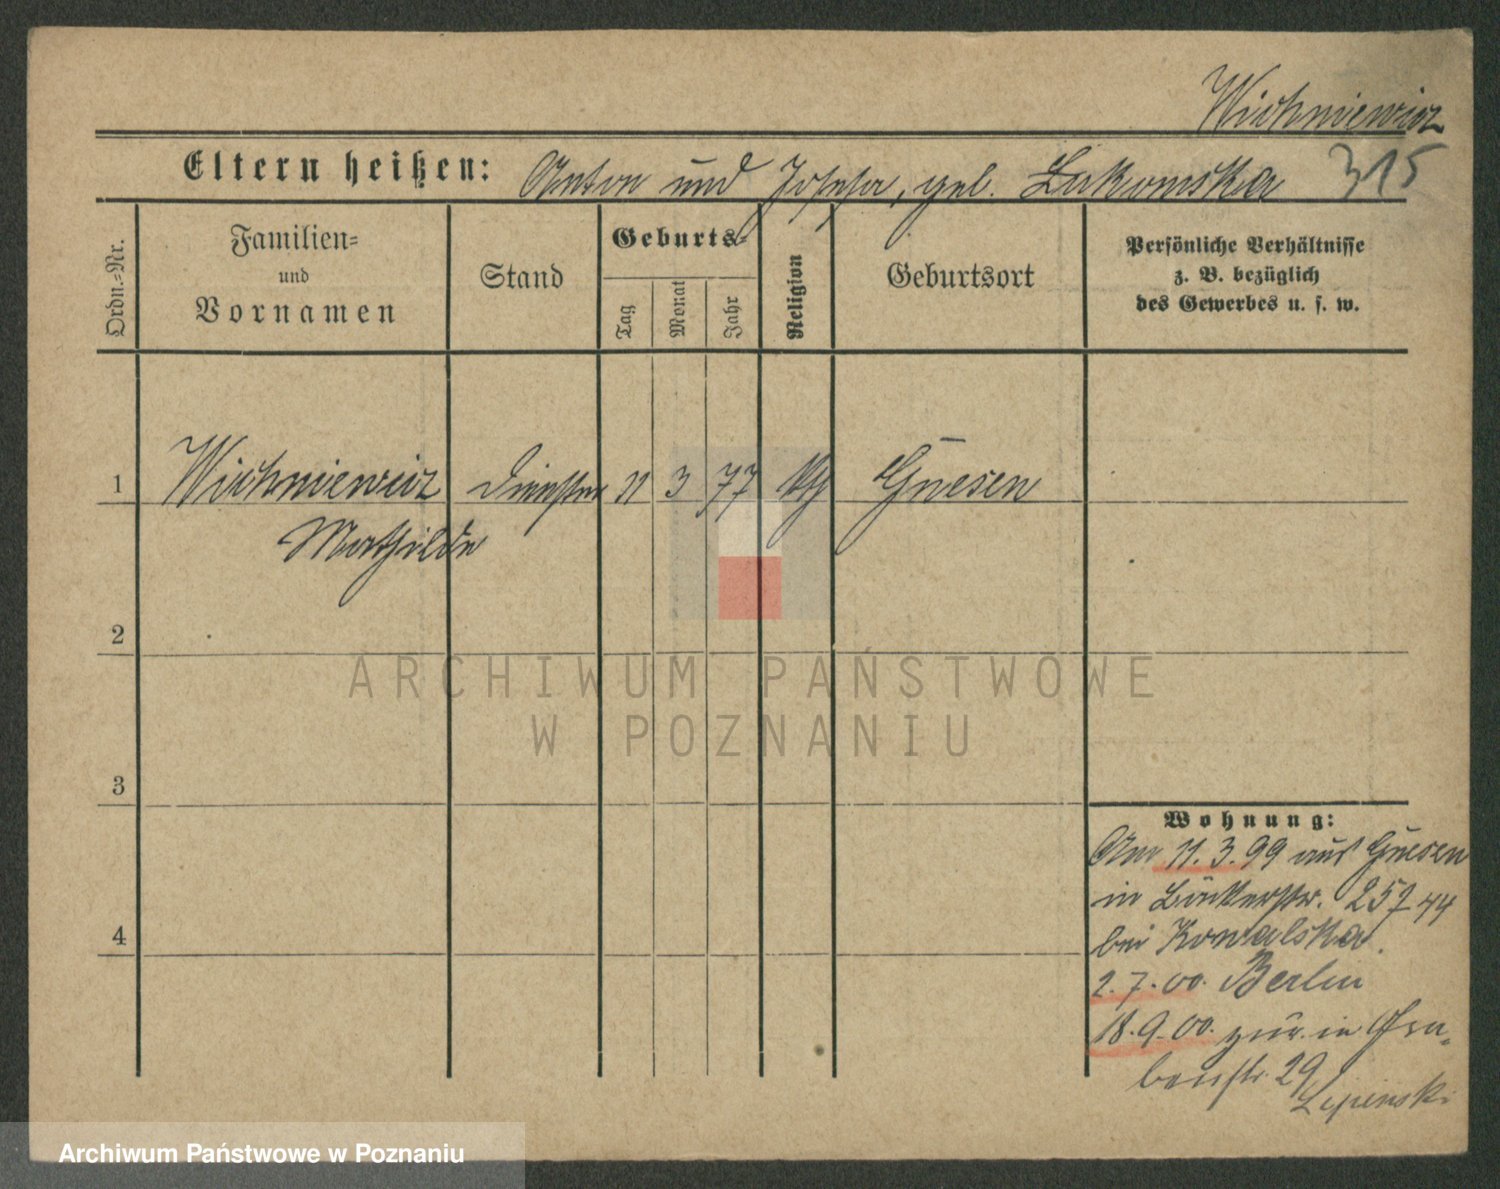 Wichniewicz
315
Eltern heißen: Anton und Josefa, geb. Lukomska
Ordn.-Nr.
Familien-
und
Vornamen
Stand
Geburts-
Tag
Monat
Jahr
Religion
Geburtsort
Persönliche Verhältnisse
z. B. bezüglich
des Gewerbes u. s. w.
1 Wichniewicz 11 3 77 Gnesen
Mathilde
2
ARCHIWUM PAŃSTWOWE
W POZNANIU
3
Wohnung:
Am 11. 3. 99 aus Gnesen
in Bäckerstr. 25
bei Kowalska.
4
2. 7. 00. Berlin
18. 9. 00. zur. in Gra-
benstr. 29
Lipinski
Archiwum Państwowe w Poznaniu